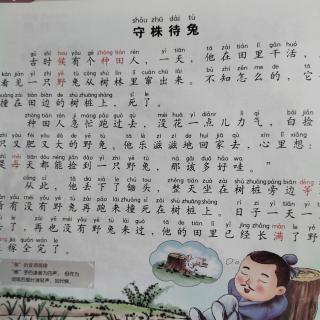 shǒu zhū dài tù
守株待兔
gǔ shí hou yǒu gè zhòng tián rén yì tiān tā zài tián lǐ gàn huó
古时候有个种田人,一天,他在田里干活,
kàn jiàn yì zhī yě tù cóng shù lín lǐ cuàn chū lái bù zhī zěn me de tā
看见一只野兔从树林里窜出来。不知怎么的,它
zài tián biān de shù zhuāng shàng sǐ le
撞在田边的树桩上,死了。
zhòng tián rén jí máng pǎo guò qù méi huā yì diǎnr lì qi bái jiǎn
种田人急忙跑过去,没花一点儿力气,白捡
zhī yòu féi yòu dà de yě tù tā lè zī zī de huí jiā qù xīn li xiǎng
只又肥又大的野兔。他乐滋滋地回家去,心里想:
shì měi tiān dōu néng jiǎn dào yì zhī yě tù nà gāi duō hǎo wa
是每天都能捡到一只野兔,那该多好哇。”
cóng cǐ tā diū xià le chú tou zhěng tiān zuò zài shù zhuāng páng biān děng
从此,他丢下了锄头,整天坐在树桩旁边等
kàn yǒu méi yǒu yě tù zài pǎo lái zhuàng sǐ zài shù zhuāng shàng rì zi yì tiān yì
看有没有野兔再跑来撞死在树桩上。日子一天一
zài yě méi yǒu yě tù lái guo tā de tián lǐ yǐ jīng zhǎng mǎn le yě
再也没有野兔来过,他的田里已经长满了野
jia quán wán le
庄稼全完了。